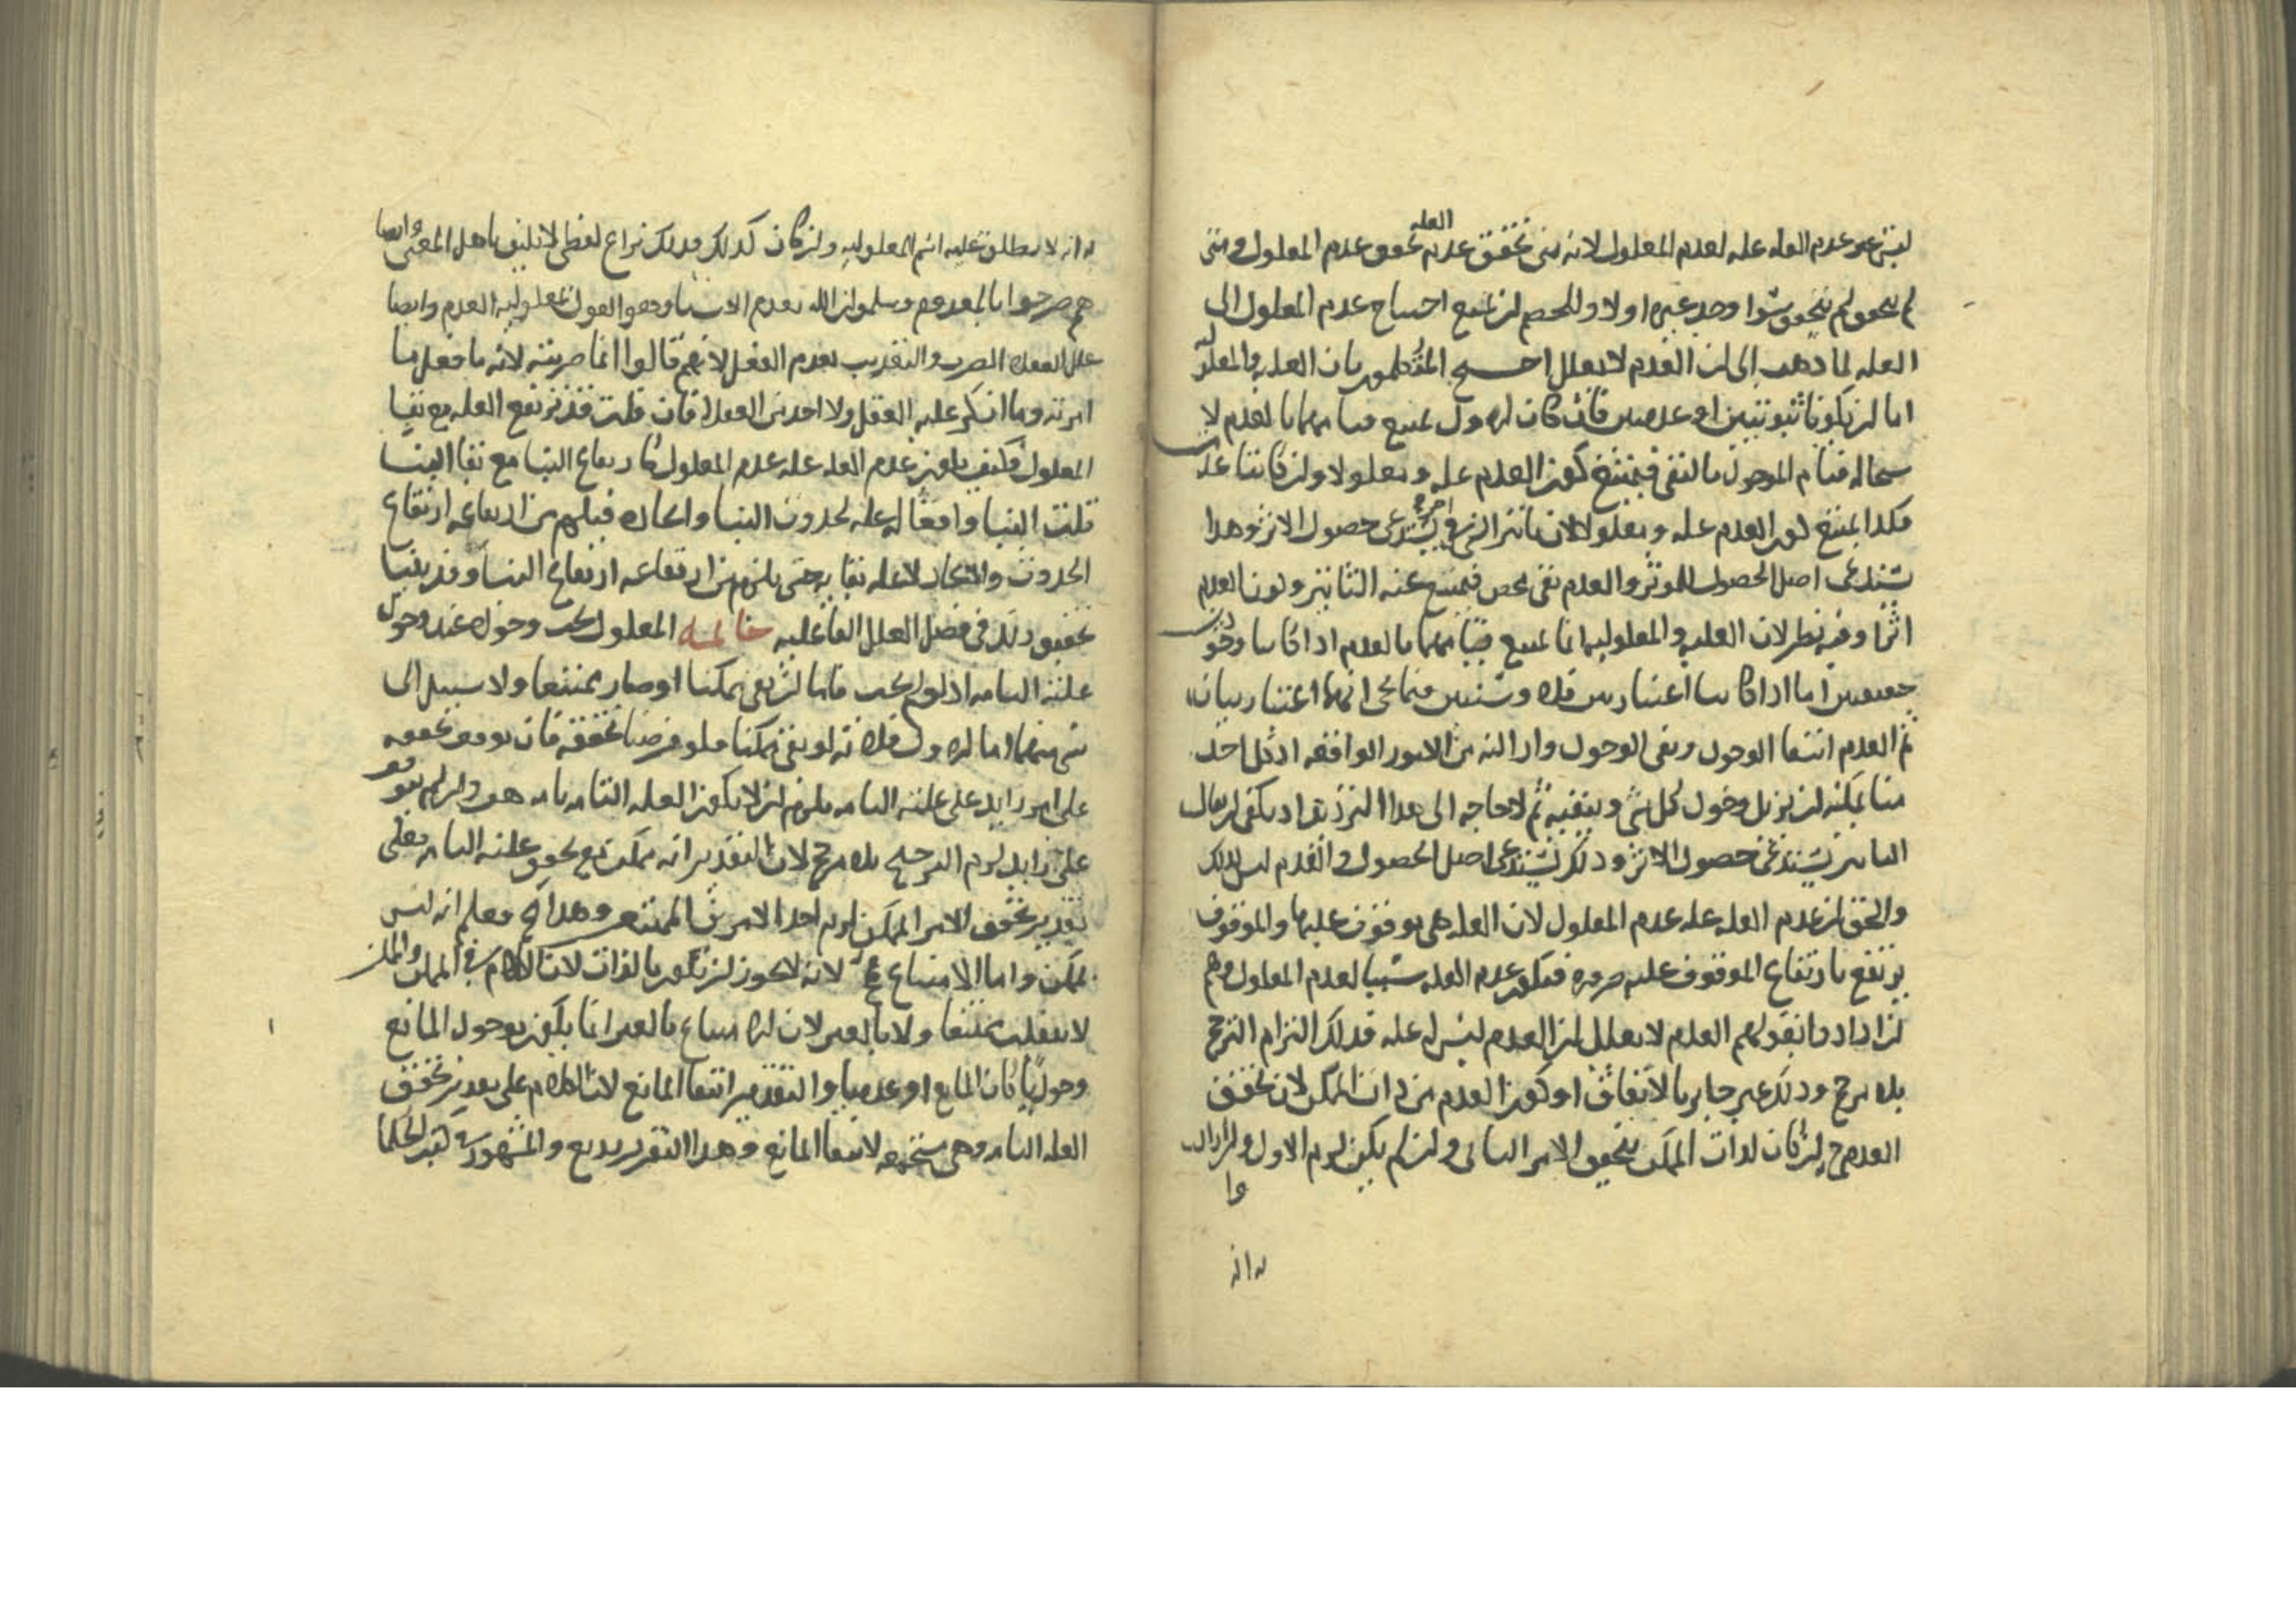 ليس غير عدم العله عله لعدم المعلول لانه متى تحقق عدم العله تحقق عدم المعلول ومتى
لم يتحقق لم يتحقق سوا وجد غيره اولا وللخصم ان يمنع احتياج عدم المعلول الى
العله لما ذهب الى ان العدم لا يعلل احتج بان العليه والمعلوليه
اما ان يكونا ثبوتيتين او عدميتين فان كان الاول يمتنع قيامهما بالعدم لا
ستحاله قيام الموجود بالنفى فيمتنع كون العدم عله ومعلولا وان كانتا
فكذا يمتنع كون العدم عله ومعلولا لان تاثير الشى فى اخر يستدعى حصول الاثر وهذا
يستدعى اصل الحصول للموثر والعدم نفى محض فيمتنع عنه التاثير وكون العدم
اثرا وفيه نظر لان العليه والمعلوليه انما يمتنع قيامهما بالعدم اذا كانتا وجوديتين
حقيقيتين اما اذا كانتا اعتباريتين فلا وستبين فيما بعد انهما اعتباريتان
ثم العدم انتفا الوجود ونفى الوجود وازالته من الامور الواقعه اذ كل احد
منا يمكنه ان يزيل وجود كل شى وينفيه ثم لا حاجه الى هذا الترديد اذ يكفى ان يقال
التاثير يستدعى حصول الاثر وذلك يستدعى اصل الحصول والعدم ليس كذلك
والحق ان عدم العله عله عدم المعلول لان العله هى موقوف عليها والموقوف
يرتفع بارتفاع الموقوف عليه ضروره فيكون عدم العله سببا لعدم المعلول وهم
ان ارادوا بقولهم العدم لا يعلل ان العدم ليس له عله فذلك التزام الترجح
بلا مرجح وذلك غير جايز بالاتفاق او كون العدم من ذات الممكن لان تحقق
العدم ح ان كان لذات الممكن يتحقق الامر الثانى وان لم يكن لزم الاول وان ارادوا
وا
به انه
به انه لا يطلق عليه اسم المعلوليه وان كان كذلك فذلك نزاع لفظى لا يليق باهل المعنى وايضا
هم صرحوا بالمعدوم وسلموا ان الله يعدم الاشيا القول بمعلوليه العدم وايضا
علل العقلا الضرب والتقريب بعدم الفعل لانهم قالوا انما ضربته لانه ما فعل ما
امرته وما انكر عليه العقل ولا احد من العقلا فان قلت قد يرتفع العله مع بقا
المعلول فكيف يكون عدم العله عله عدم المعلول كارتفاع البنا مع بقا البنا
قلت البنا وافعاله عله لحدوث البنا واتحاده فيلزم من ارتفاعه ارتفاع
الحدوث والاتحاد لا عله بقايه حتى يلزم من ارتفاعه ارتفاع البنا وقد بينا
تحقيق ذلك فى فصل العلل الفاعليه خاتمه المعلول يجب وجوده عند وجود
علته التامه اذ لو لم يجب فاما ان بقى ممكنا او صار ممتنعا ولا سبيل الى
شى منهما اما الاول فلانه لو بقى ممكنا فلو فرضنا تحققه فان توقف تحققه
على امر زايد على علته التامه يلزم ان لا يكون العله التامه تامه هف وان لم يتوقف
على زايد لزم الترجيح بلا مرجح لان التقدير انه ممكن مع تحقق علته التامه فعلى
تقدير تحقق الامر الممكن لزم احد الامرين الممتنعين وهذا مح فعلم انه ليس
بممكن واما الامتناع فح لانه لا يجوز ان يكون بالذات لان الكلام فى الممكن والممكن
لا ينقلب ممتنعا ولا بالغير لان الامتناع بالغير انما يكون بوجود المانع
وجوديا كان المانع او عدميا والتقدير انتفا المانع لان الكلام على تقدير تحقق
العله التامه وهى مستجمعه لانتفا المانع وهذا التقرير بديع والمشهور من كتب الحكما